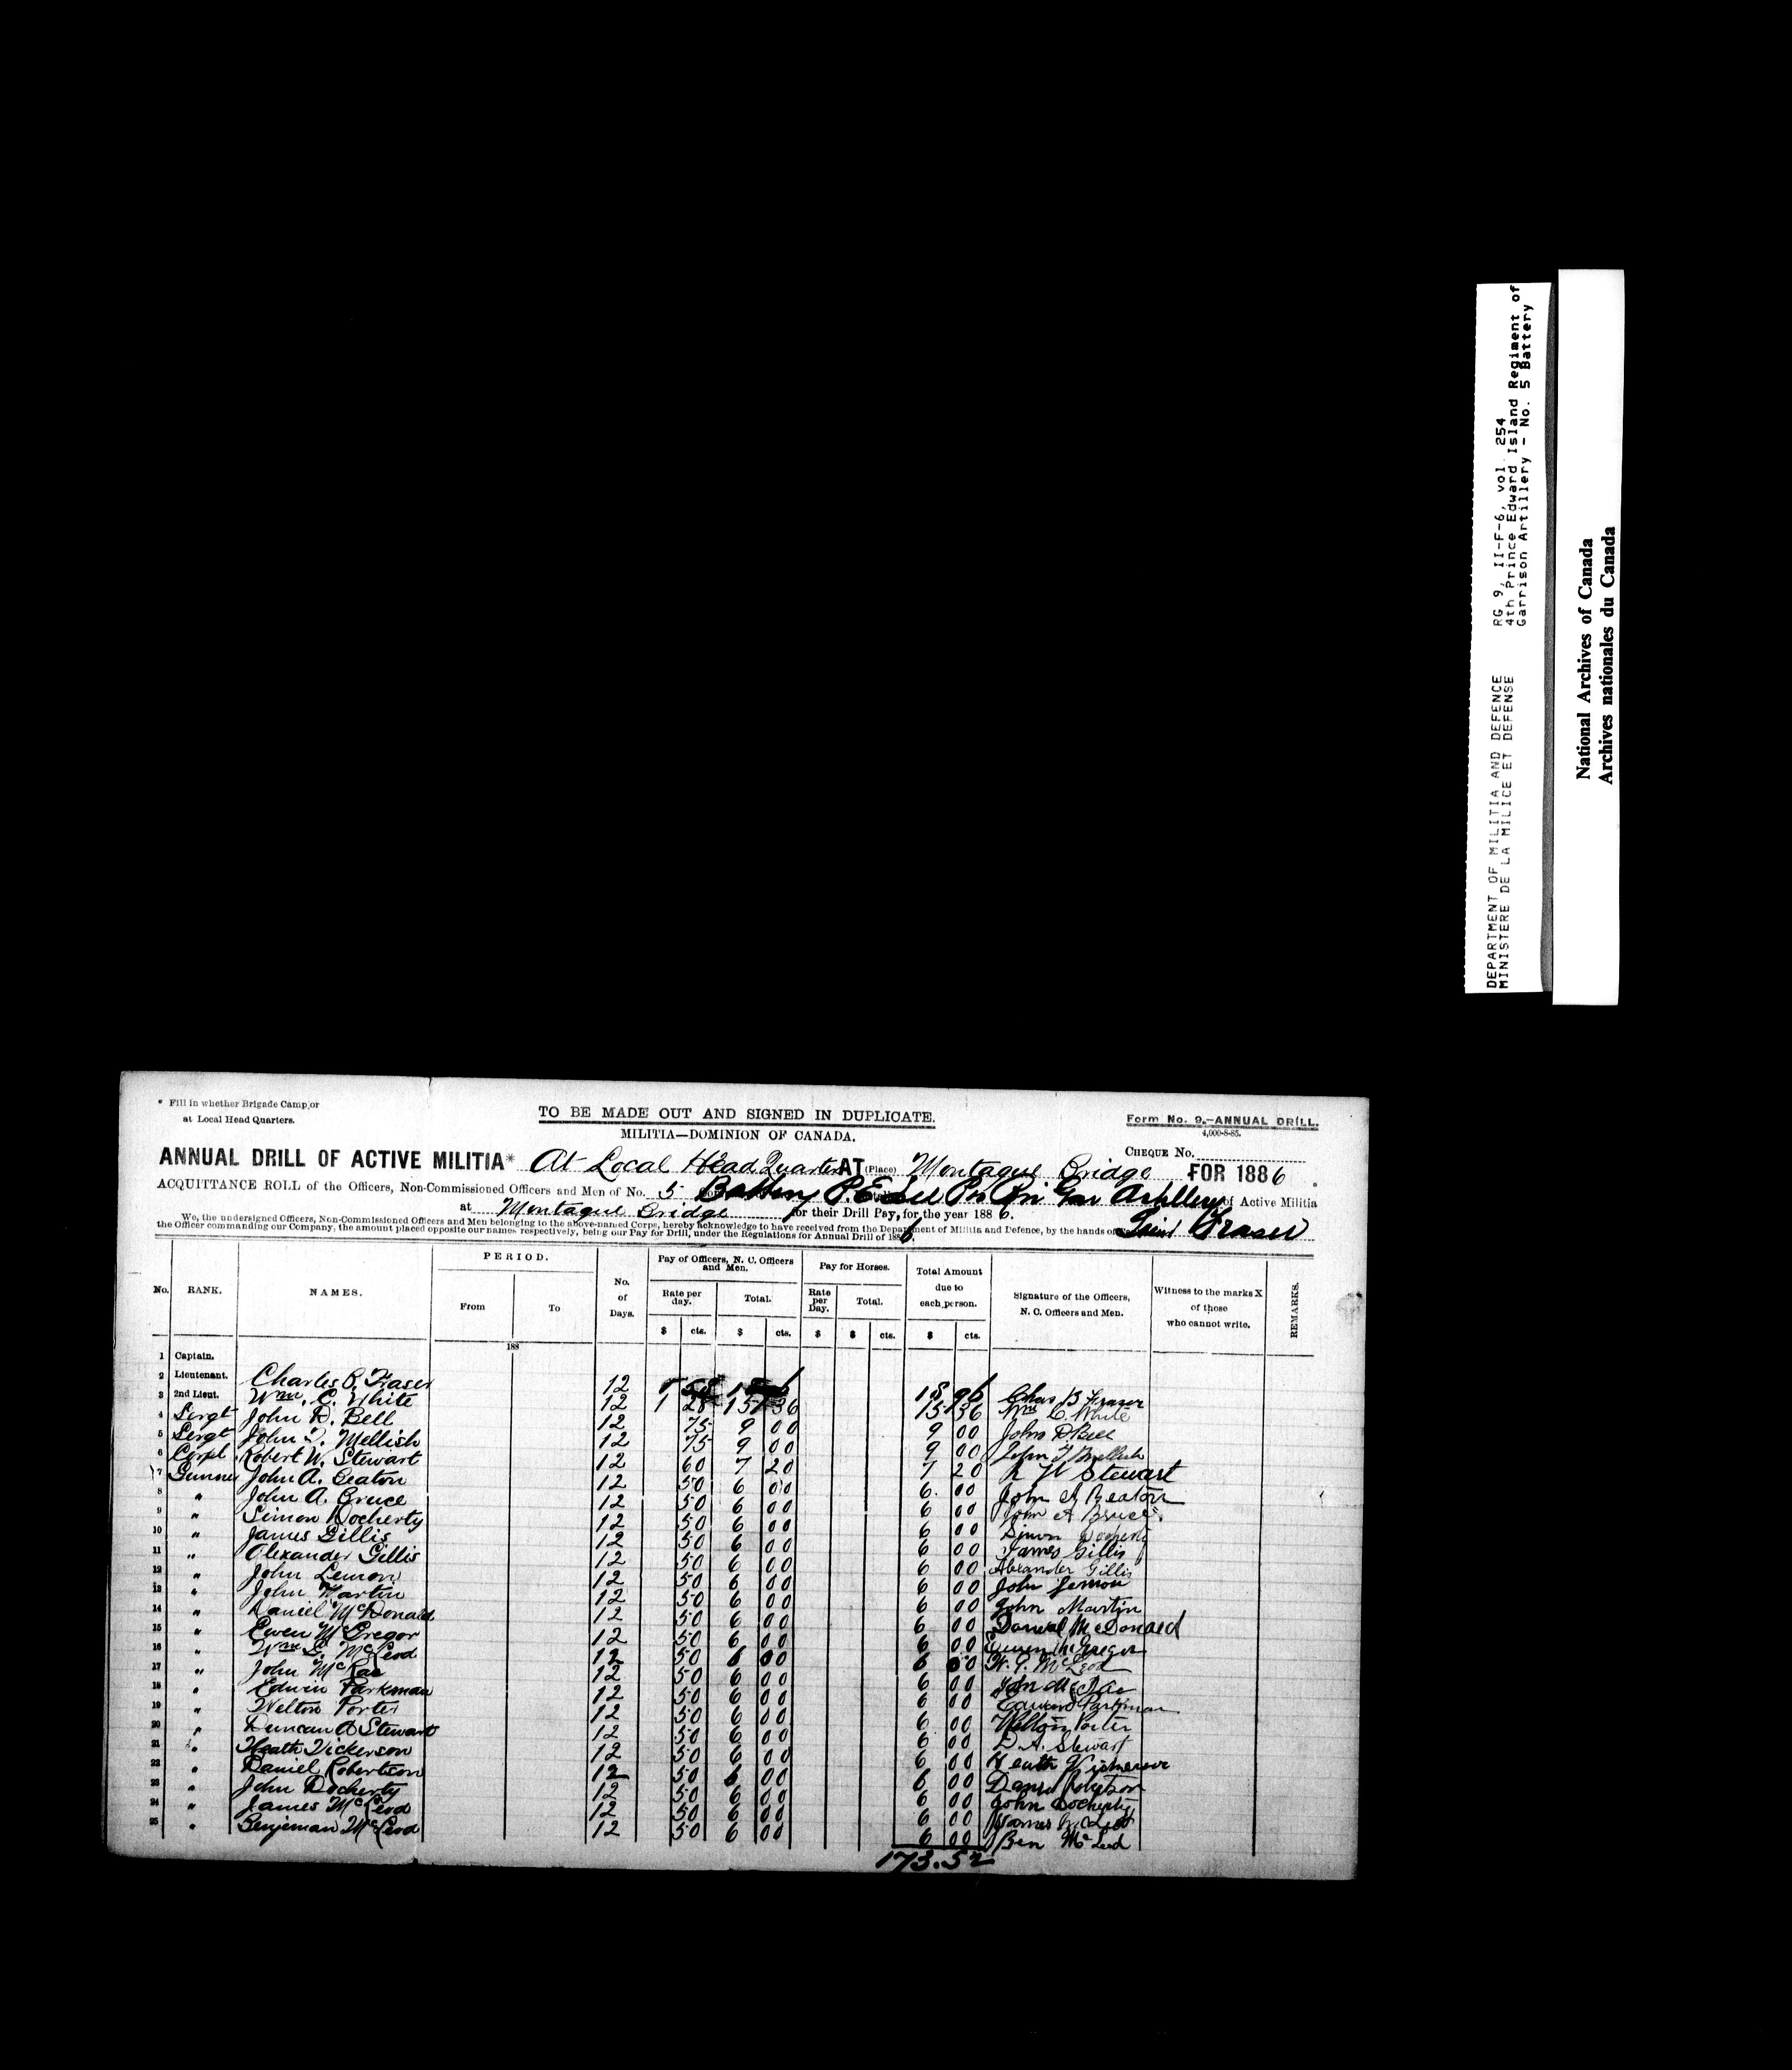 DEPARTMENT OF MILITIA AND DEFENCE
MINISTERE DE LA MILICE ET DEFENSE
RG 9, II-F-6, vol 254
4th Prince Edward Island Regiment of
Garrison Artillery - No. 5 Battery
National Archives of Canada
Archives nationales du Canada
* Fill in whether Brigade Camp or
at Local Head Quarters.
TO BE MADE OUT AND SIGNED IN DUPLICATE.
Form No. 9.—ANNUAL DRILL.
4,000-8-85.
MILITIA—DOMINION OF CANADA.
CHEQUE No.
ANNUAL DRILL OF ACTIVE MILITIA* At Local Head Quarters AT (Place) Montague Bridge FOR 1886.
ACQUITTANCE ROLL of the Officers, Non-Commissioned Officers and Men of No. 5 Battery P.E. Gar Artillery of Active Militia
at Montague Bridge for their Drill Pay, for the year 1886.
We, the undersigned Officers, Non-Commissioned Officers and Men belonging to the above-named Corps, hereby acknowledge to have received from the Department of Militia and Defence, by the hands of Fraser
the Officer commanding our Company, the amount placed opposite our names respectively, being our Pay for Drill, under the Regulations for Annual Drill of 1886.
No. RANK. NAMES. PERIOD. From To No. of Days. Pay of Officers, N. C. Officers and Men. Rate per day. Total. Pay for Horses. Rate per Day. Total. Total Amount due to each person. Signature of the Officers, N. C. Officers and Men. Witness to the marks X of those who cannot write. REMARKS.
$ cts. $ cts. $ $ cts. $ cts.
188
1 Captain.
2 Lieutenant. Charles B. Fraser 12 1 58 18 96 18 96 Chas B Fraser
3 2nd Lieut. Wm. C. White 12 1 28 15 36 15 36 Wm C. White
4 Sergt John D. Bell 12 75 9 00 9 00 John D Bell
5 Sergt John T. Mellish 12 75 9 00 9 00 John T Mellish
6 Corpl Robert W. Stewart 12 60 7 20 7 20 R W Stewart
7 Gunner John A. Beaton 12 50 6 00 6 00 John A Beaton
8 " John A. Bruce 12 50 6 00 6 00 John A Bruce
9 " Simon Docherty 12 50 6 00 6 00 Simon Docherty
10 " James Gillis 12 50 6 00 6 00 James Gillis
11 " Alexander Gillis 12 50 6 00 6 00 Alexander Gillis
12 " John Lemon 12 50 6 00 6 00 John Lemon
13 " John Martin 12 50 6 00 6 00 John Martin
14 " Daniel McDonald 12 50 6 00 6 00 Daniel McDonald
15 " Ewen McGregor 12 50 6 00 6 00 Ewen McGregor
16 " Wm. G. McLeod 12 50 6 00 6 00 W. G. McLeod
17 " John McRae 12 50 6 00 6 00 John McRae
18 " Edwin Parkman 12 50 6 00 6 00 Edwin Parkman
19 " Welton Porter 12 50 6 00 6 00 Welton Porter
20 " Duncan A Stewart 12 50 6 00 6 00 D. A. Stewart
21 " Heath Vickerson 12 50 6 00 6 00 Heath Vickerson
22 " Daniel Robertson 12 50 6 00 6 00 Daniel Robertson
23 " John Docherty 12 50 6 00 6 00 John Docherty
24 " James McLeod 12 50 6 00 6 00 James McLeod
25 " Benjeman McLeod 12 50 6 00 6 00 Ben McLeod
173.52